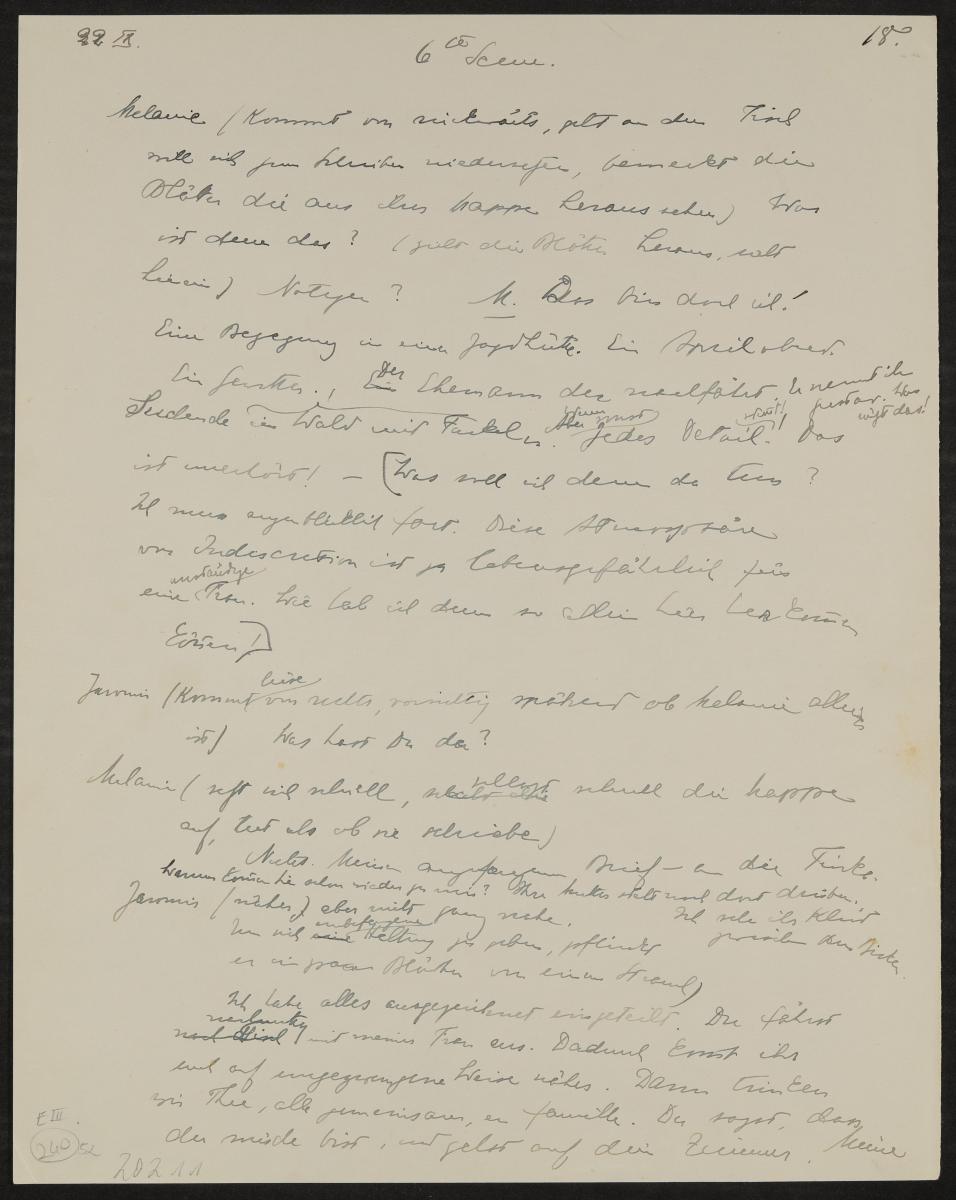 22 IX.
18.
6te Scene.
Melanie (Kommt von rückwärts, geht an den Tisch
will sich zum Schreiben niedersetzen, bemerkt die
Blätter die aus der Mappe heraussehen) Was
ist denn das? (zieht die Blätter heraus, sieht
hinein) Notizen? M. Das bin doch ich!
Eine Begegnung in einer Jagdhütte. Ein Aprilabend.
Ein Gewitter., Der Ehemann der nachfährt. Er nennt ihn
Gustav. Was
Suchende im Wald mit Fackeln. Jedes Detail! Das
ist unerhört! – (Was soll ich denn da tun?
Ich muss augenblicklich fort. Diese Atmosphäre
von Indiscretion ist ja lebensgefährlich für
anständige
eine Frau. Wie hab ich denn so allein her kommen
können!)
leise
Jaromir (Kommt von rechts, vorsichtig spähend ob Melanie allein
ist) Was hast Du da?
Melanie (setzt sich schnell, schlägt schnell die Mappe
auf, tut als ob sie schriebe)
Nichts. Meinen angefangenen Brief – an die Tinka.
Warum kommen Sie schon wieder zu mir? Ihre Mutter steht noch dort drüben.
Ich sehe ihr Kleid
zwischen den
Jaromir (näher, aber nicht ganz nahe.
unbefangene
Um sich Haltung zu geben, pflückt
er ein paar Blätter von einem Strauch)
Ich habe alles ausgezeichnet eingeteilt. Du fährst
mit meiner Frau aus. Dadurch kommt ihr
euch auf ungezwungene Weise näher. Dann trinken
wir Thee, alle gemeinsam, en famille. Du sagst, dass
du müde bist, und gehst auf dein Zimmer. Meine
E III.
240
52
20211